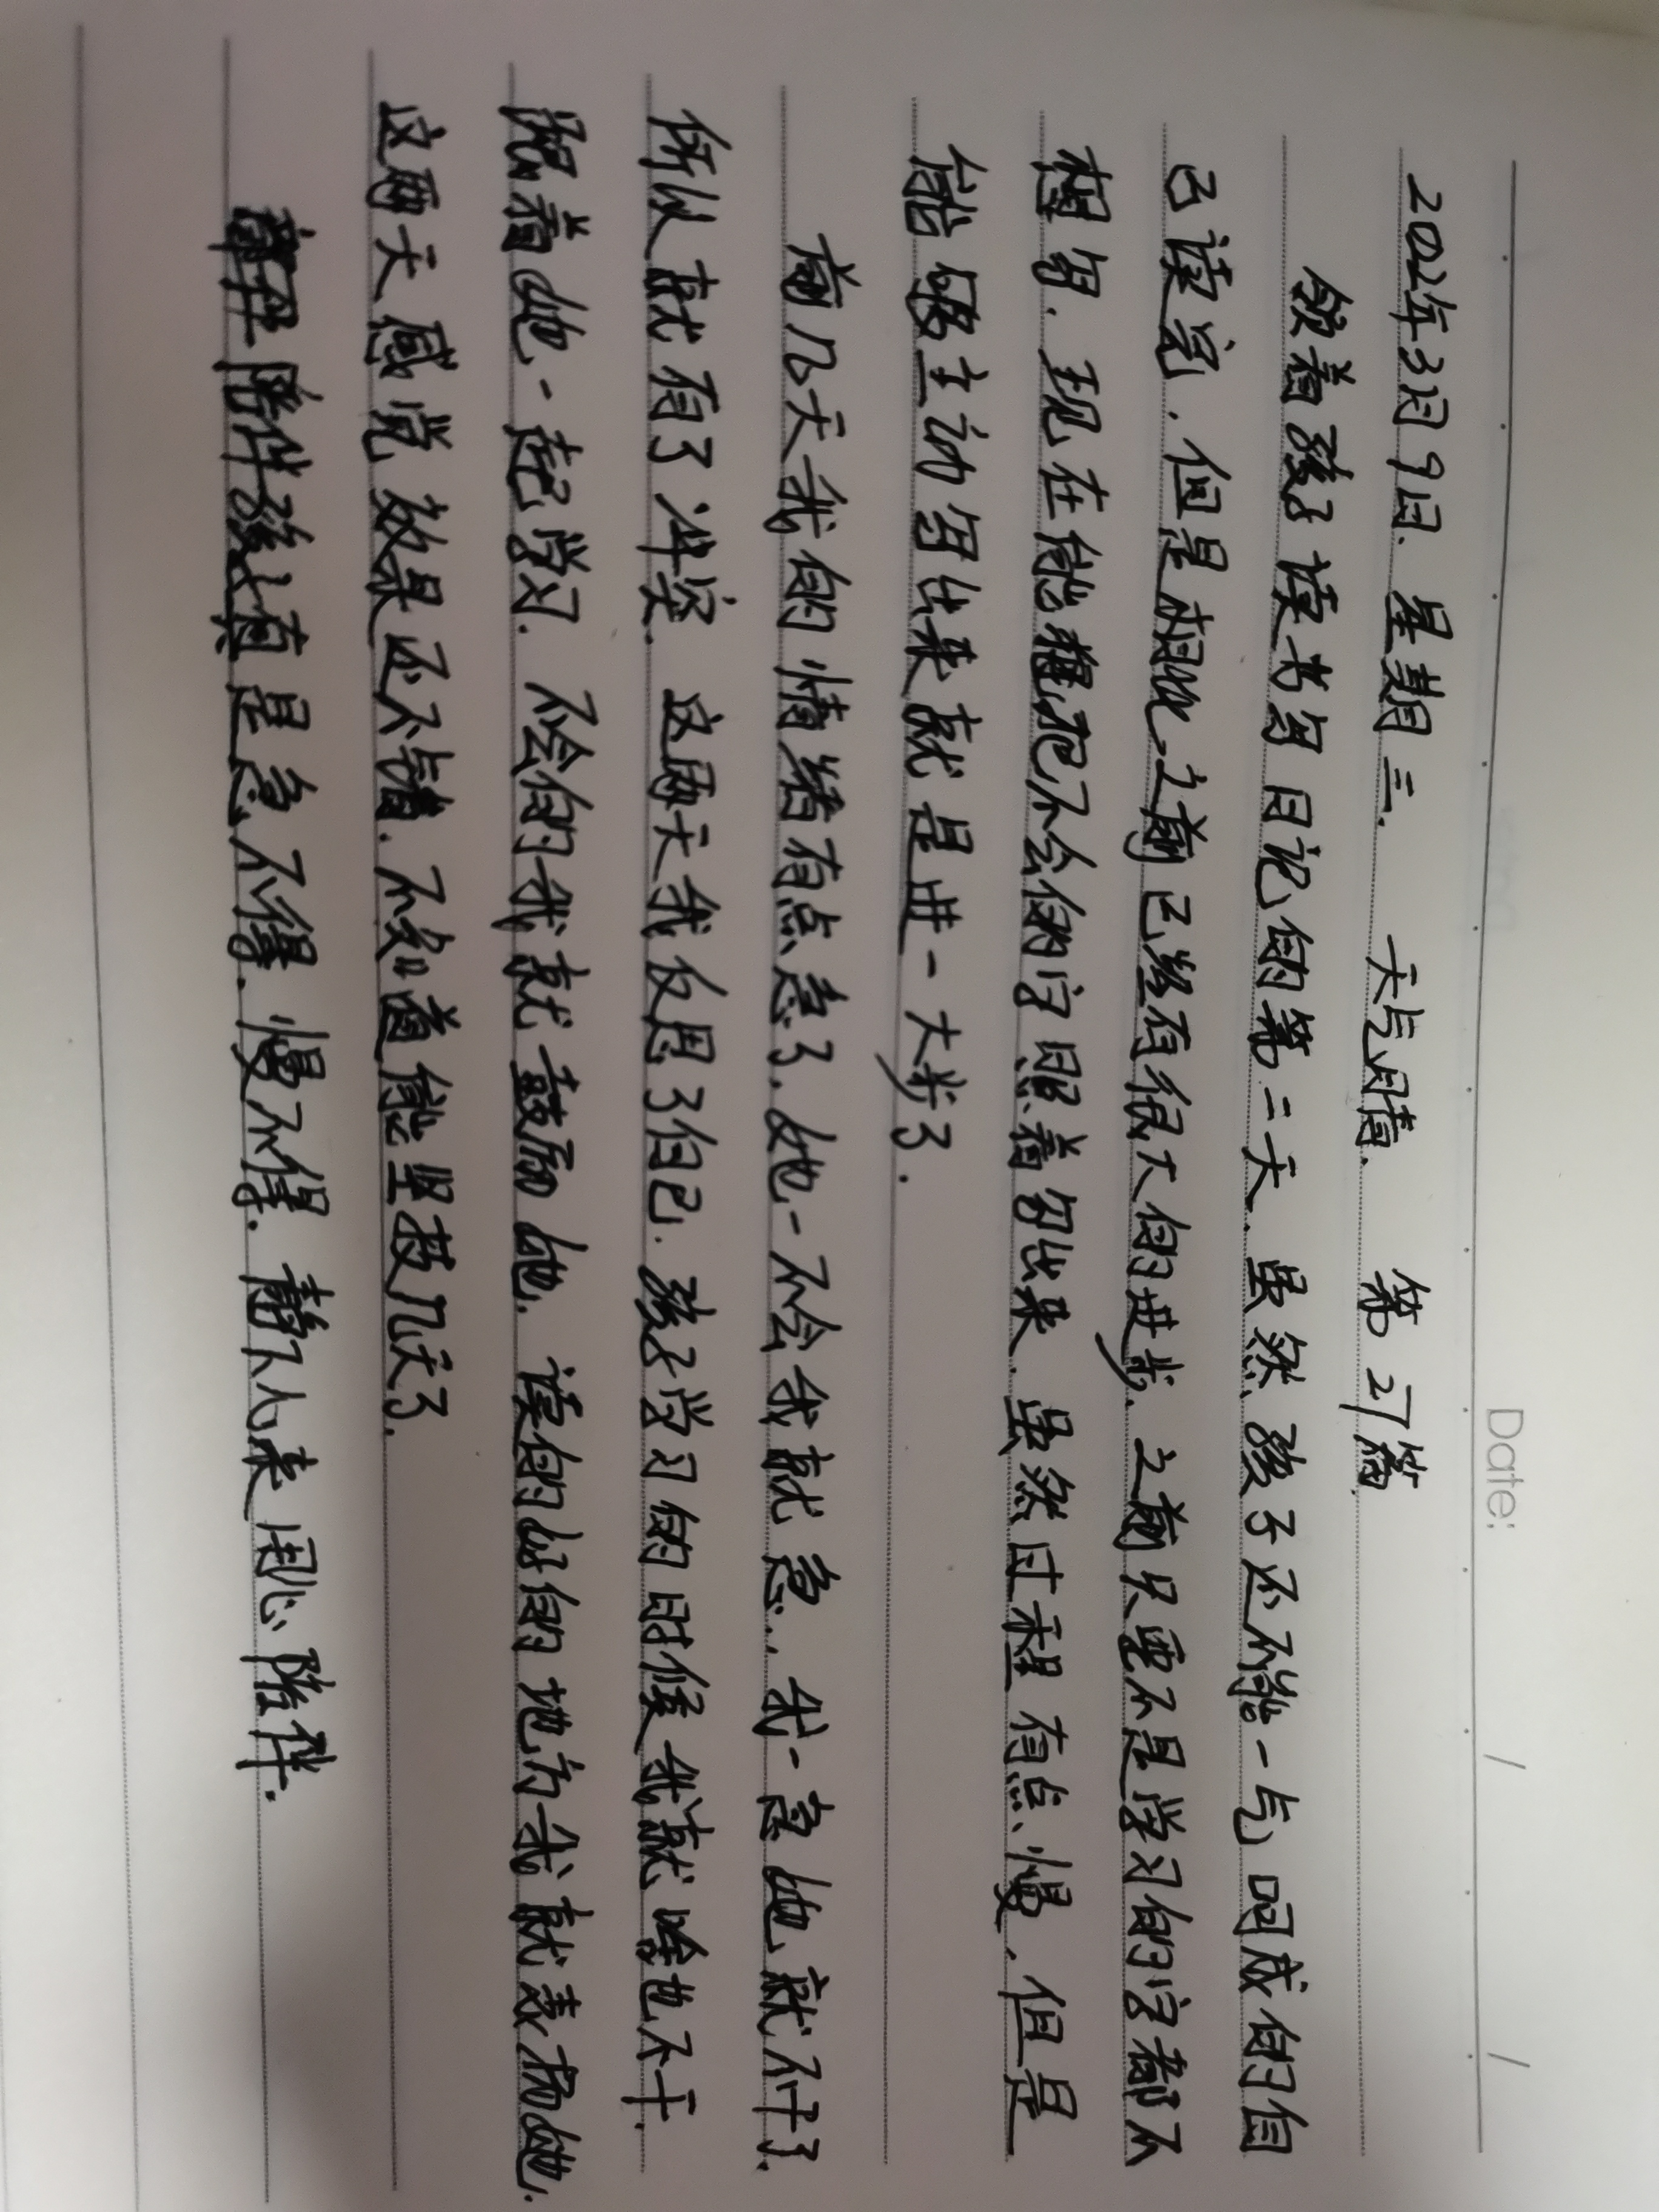 Date: / /
2022年3月9日. 星期三. 天气晴. 第27篇.
领着孩子读书写日记的第二天. 虽然孩子还不能一气呵成的自
己读完. 但是相比之前已经有很大的进步. 之前只要不是学习的字都不
想写. 现在能把不会的字照着写出来. 虽然过程有点慢. 但是
能够主动写出来就是进一大步了.
前几天我的情绪有点急了. 她一不会我就急... 我一急她就不干了.
所以就有了冲突. 这两天我反思了自己. 孩子学习的时候我就啥也不干.
跟着她一起学习. 不会的我就鼓励她. 读的好的地方我就表扬她.
这两天感觉效果还不错. 不知道能坚持几天了.
陪伴孩子真是急不得. 慢不得. 静下心来用心陪伴.